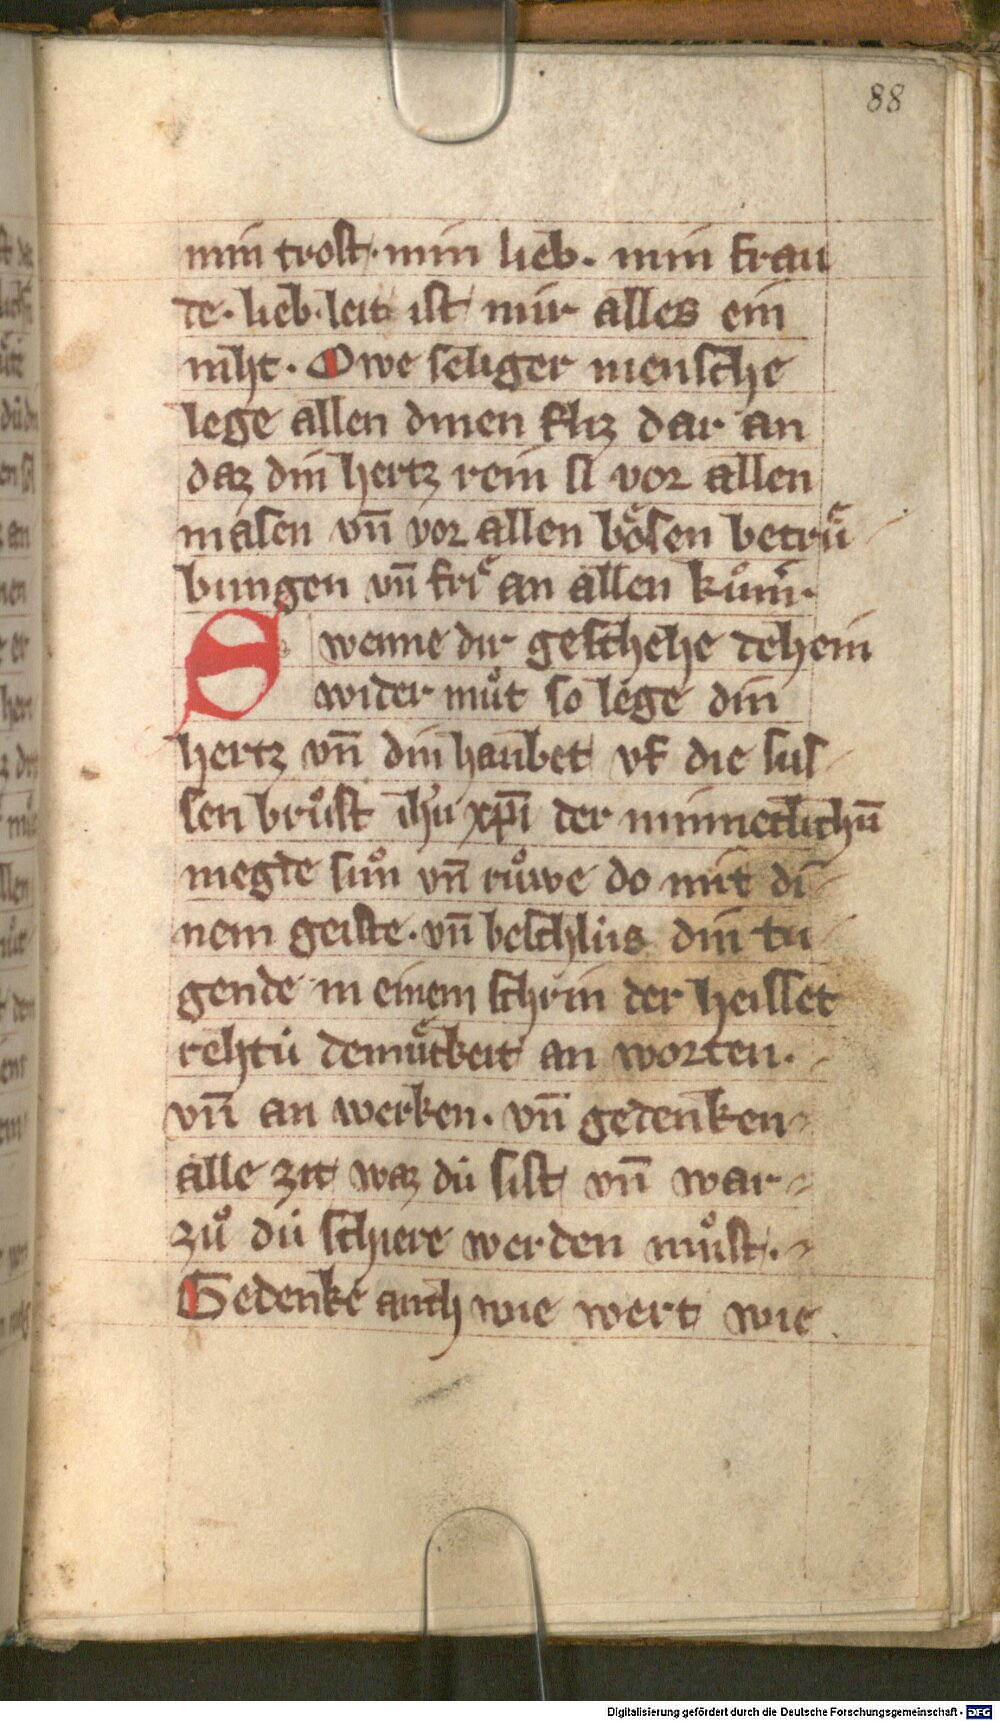 88
min trost· min lieb· min frau
de· lieb· leit ist mir alles ein
niht· Owe seliger mensche
lege allen dinen fliz dar an
daz din hertz rein si vor allen
masen vn̄ vor allen boͤsen betruͤ
bungen vn̄ fri an allen kum̄·
Swenne dir geschehe dehein
wider muͦt so lege din
hertz vn̄ din haubet vf die süs
sen brust ih̄u xp̄i der minneclichū
megde suͦn vn̄ ruͦwe do mit di
nem geiste· vn̄ beschlüs din tu
gende in einem schrin der heisset
rehtü demuͤtkeit an worten·
vn̄ an werken· vn̄ gedenken
alle zit waz du sist vn̄ war
zuͦ du schiere werden muͦst·
Gedenke auch wie wert wie
Digitalisierung gefördert durch die Deutsche Forschungsgemeinschaft - DFG